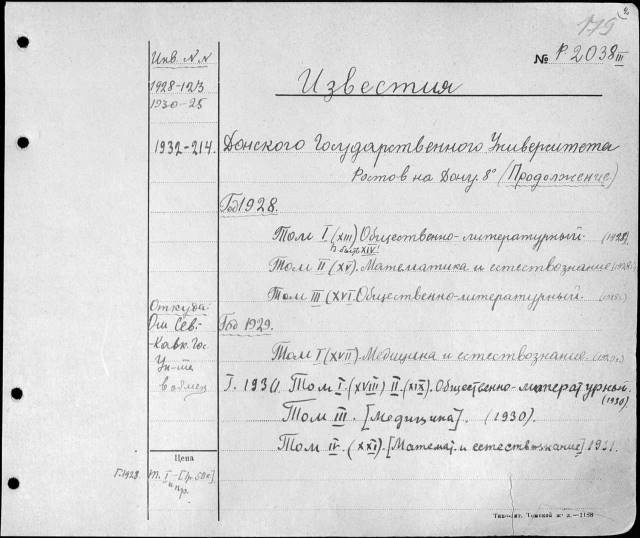 175
№ Р 2038 III
Инв. N.N
1928-123
1930-25
1932-214.
Известия
Донского Государственного Университета
Ростов на Дону. 8° (Продолжение)
Год 1928.
Том I (XIII) Общественно-литературный. (1928).
XIV!
Том II (XV). Математика и естествознание (1928).
Том III (XVI. Общественно-литературный. (1928).
Откуда
От Сев.-
Кавк. Гос.
Ун-та
в обмен
Год 1929.
Том I (XVII) Медицина и естествознание (1929).
Г. 1930. Том I. (XVIII) II. (XIX). Общественно-литературный.
(1930)
Том III. [Медицина]. (1930).
Том IV. (XXI). [Математ. и естествознание] 1931.
Цена
Г. 1928.
т. I - [1р. 50к]
и пр.
Типо-лит. Томской ж. д.—1158